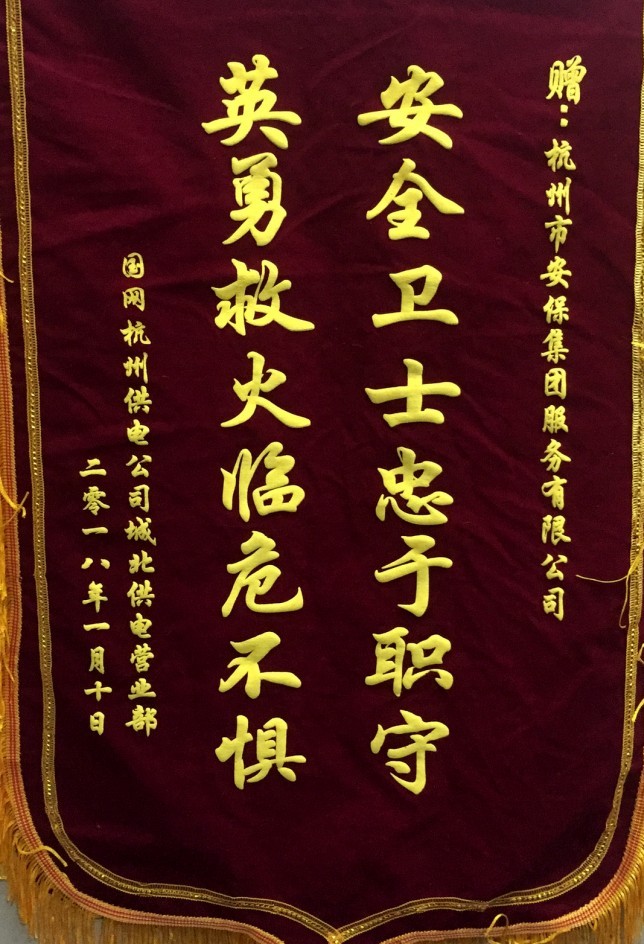 赠：杭州市安保集团服务有限公司
安全卫士忠于职守
英勇救火临危不惧
国网杭州供电公司城北供电营业部
二零一八年一月十日